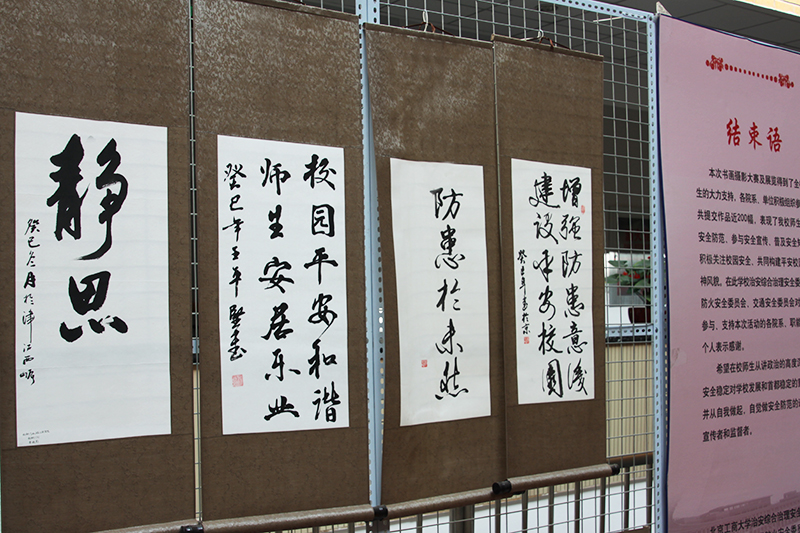 静思
癸巳冬月於津江西
校园平安和谐
师生安居乐业
癸巳年子平
防患於未然
增强防患意识
建设平安校园
癸巳年书於京
结束语
本次书画摄影大赛及展览得到了全
生的大力支持，各院系、单位积极组织参
共提交作品近200幅，表现了我校师生
安全防范、参与安全宣传、普及安全
积极关注校园安全、共同构建平安校园
神风貌。在此学校治安综合治理安全委
防火安全委员会、交通安全委员会对
参与、支持本次活动的各院系、职
个人表示感谢。
希望在校师生从讲政治的高度
安全稳定对学校发展和首都稳定的
并从自我做起，自觉做安全防范的
宣传者和监督者。
北京工商大学治安综合治理安全
火安全委员会